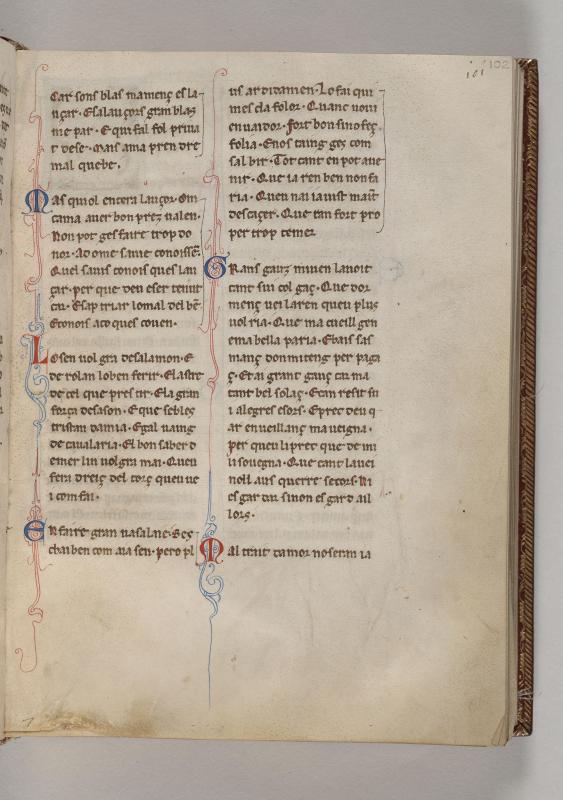 102
101
Car sons blas mamenç es la
nçar · E sa lançors gran blaz
me par · E qui fal fol priua
t dese · Mais ama pren dre
mal quebe ·
Mas qui ol encera lançor · On
cama auer bon prez ualen ·
Non pot ges faire trop do
nor · Ad ome saiue
Quel saius conois ques lau
çar · per que deu eser tenut
car · E sap triar lomal del bē
E conois aco ques couen ·
Lo sen uol gra de salamon · E
de rolan loben ferir · E lastre
de cel que pres tir · E la gran
força de sason · E que sebles
tristan damia · E galuaing
de caualaria · E l bon saber d
emerlin uolgra mai · Queu
fera dreiç del torç queu ue
i com fai ·
En faire gran uasalatie · Seç
chaiben com aia sen · pero pl
us ardidamen · Lo fai qui
mes cla folor · Quanc noui
en uaidor · fort bon sino feç
folia · E nos taing geç com
sal bir · Tot cant en pot aue
nir · Que ia ren ben non fa
ria · Queu nai iauist maīt
descaçer · Que tan fort pro
per trop temer
Grans gauz mi uen la noit
cant sui col gaç · Que dor
menç uei la ren queu plus
uol ria · Que ma cueill gen
em a bella paria · E bais sas
manç don miteng per paga
ç · Et ai grant gauç car ma
tant bel solaç · E can resit su
i alegres e sors · E prec deu q
ar en ueillanç ma ueigna ·
per queu li prec que de mi
li souegna · Que cant lauei
noll aus querre secors · Ni
es gar dar sinon es gard ail
lors ·
Mal trait damor no seran ia